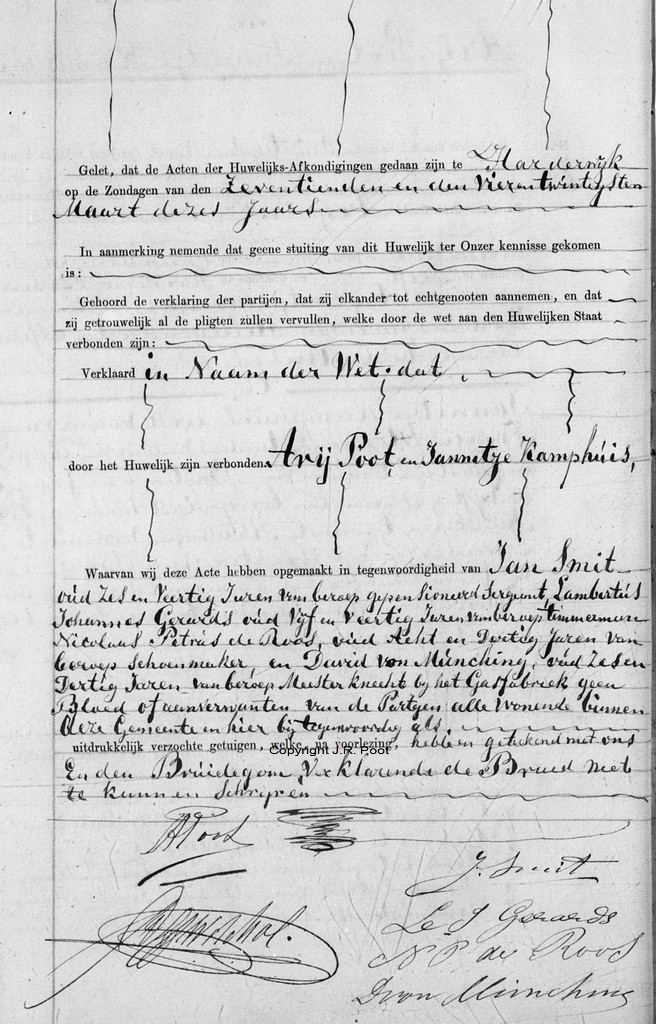 Gelet, dat de Acten der Huwelijks-Afkondigingen gedaan zijn te Harderwijk
op de Zondagen van den Zeventienden en den Vierentwintigsten
Maart dezes Jaars
In aanmerking nemende dat geene stuiting van dit Huwelijk ter Onzer kennisse gekomen
is:
Gehoord de verklaring der partijen, dat zij elkander tot echtgenooten aannemen, en dat
zij getrouwelijk al de pligten zullen vervullen, welke door de wet aan den Huwelijken Staat
verbonden zijn:
Verklaard in Naam der Wet. dat
door het Huwelijk zijn verbonden Arij Poot, en Jannetze Kamphúis,
Waarvan wij deze Acte hebben opgemaakt in tegenwoordigheid van Jan Smit
oúd Zes en Veertig Jaren van beroep gepensioneerd Sergeant, Lambertús
Johannes Gerards oúd Vijf en Veertig Jaren van beroep timmerman
Nicolaas Petrús de Roos, oúd Acht en Dertig Jaren van
beroep schoenmaker, en David von Múnching, oúd Zes en
Dertig Jaren van beroep Meesterknecht bij het Gasfabriek geen
Bloed of aanverwanten van de Partyen alle Wonende binnen
deze Gemeente en hier bij tegenwoordig als
uitdrukkelijk verzochte getuigen, welke, na voorlezing, hebben getekend met ons
Copyright J.R. Poot
En den Brúidegom Verklarende de Bruid niet
te kunnen schrijven
A Poot
J. Smit
Gerards
N. P. de Roos
D von Münching